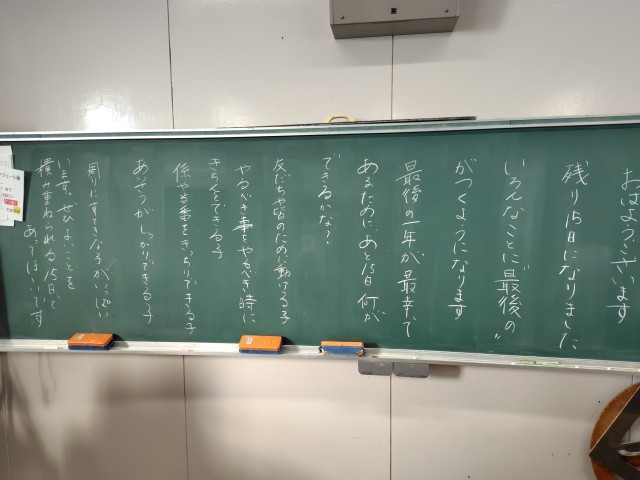 おはようございます
残り15日になりました
いろんなことに"最後の"
がつくようになります
最後の一年が最幸で
あるために、あと15日何が
できるかな?
友だちや皆のために動ける子
やるべき事をやるべき時に
きちんとできる子
係や当番をきっちりできる子
あいさつがしっかりできる子
周りにすてきな子がいっぱい
います。ぜひよいことを
積み重ねられる15日で
あってほしいです